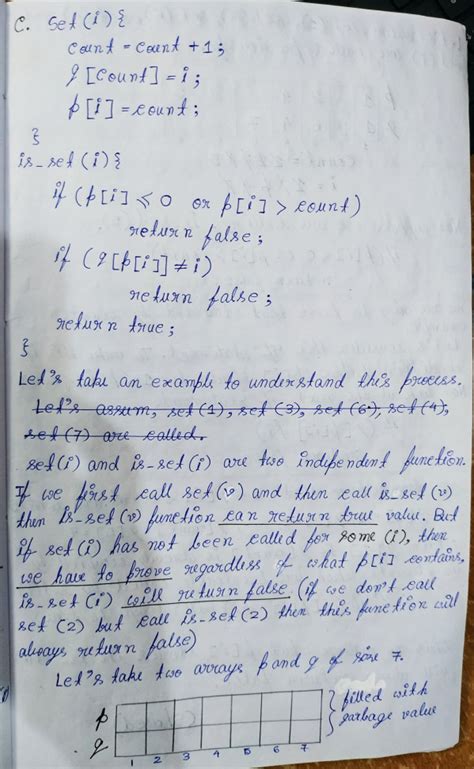 C. set(i){
count = count + 1;
q[count] = i;
p[i] = count;
}
is_set(i){
if (p[i] ⩽ 0 or p[i] > count)
return false;
if (q[p[i]] ≠ i)
return false;
return true;
}
Let's take an example to understand this process.
Let's assum, set(1), set(3), set(6), set(4),
set(7) are called.
set(i) and is_set(i) are two independent function
If we first call set(v) and then call is_set(v)
then is_set(v) function can return true value. But
if set(i) has not been called for some (i), then
we have to prove regardless of what p[i] contains,
is_set(i) will return false. (if we don't call
set(2) but call is_set(2) then this function will
always return false)
Let's take two arrays p and q of size 7.
p
q
} filled with
garbage value
1 2 3 4 5 6 7